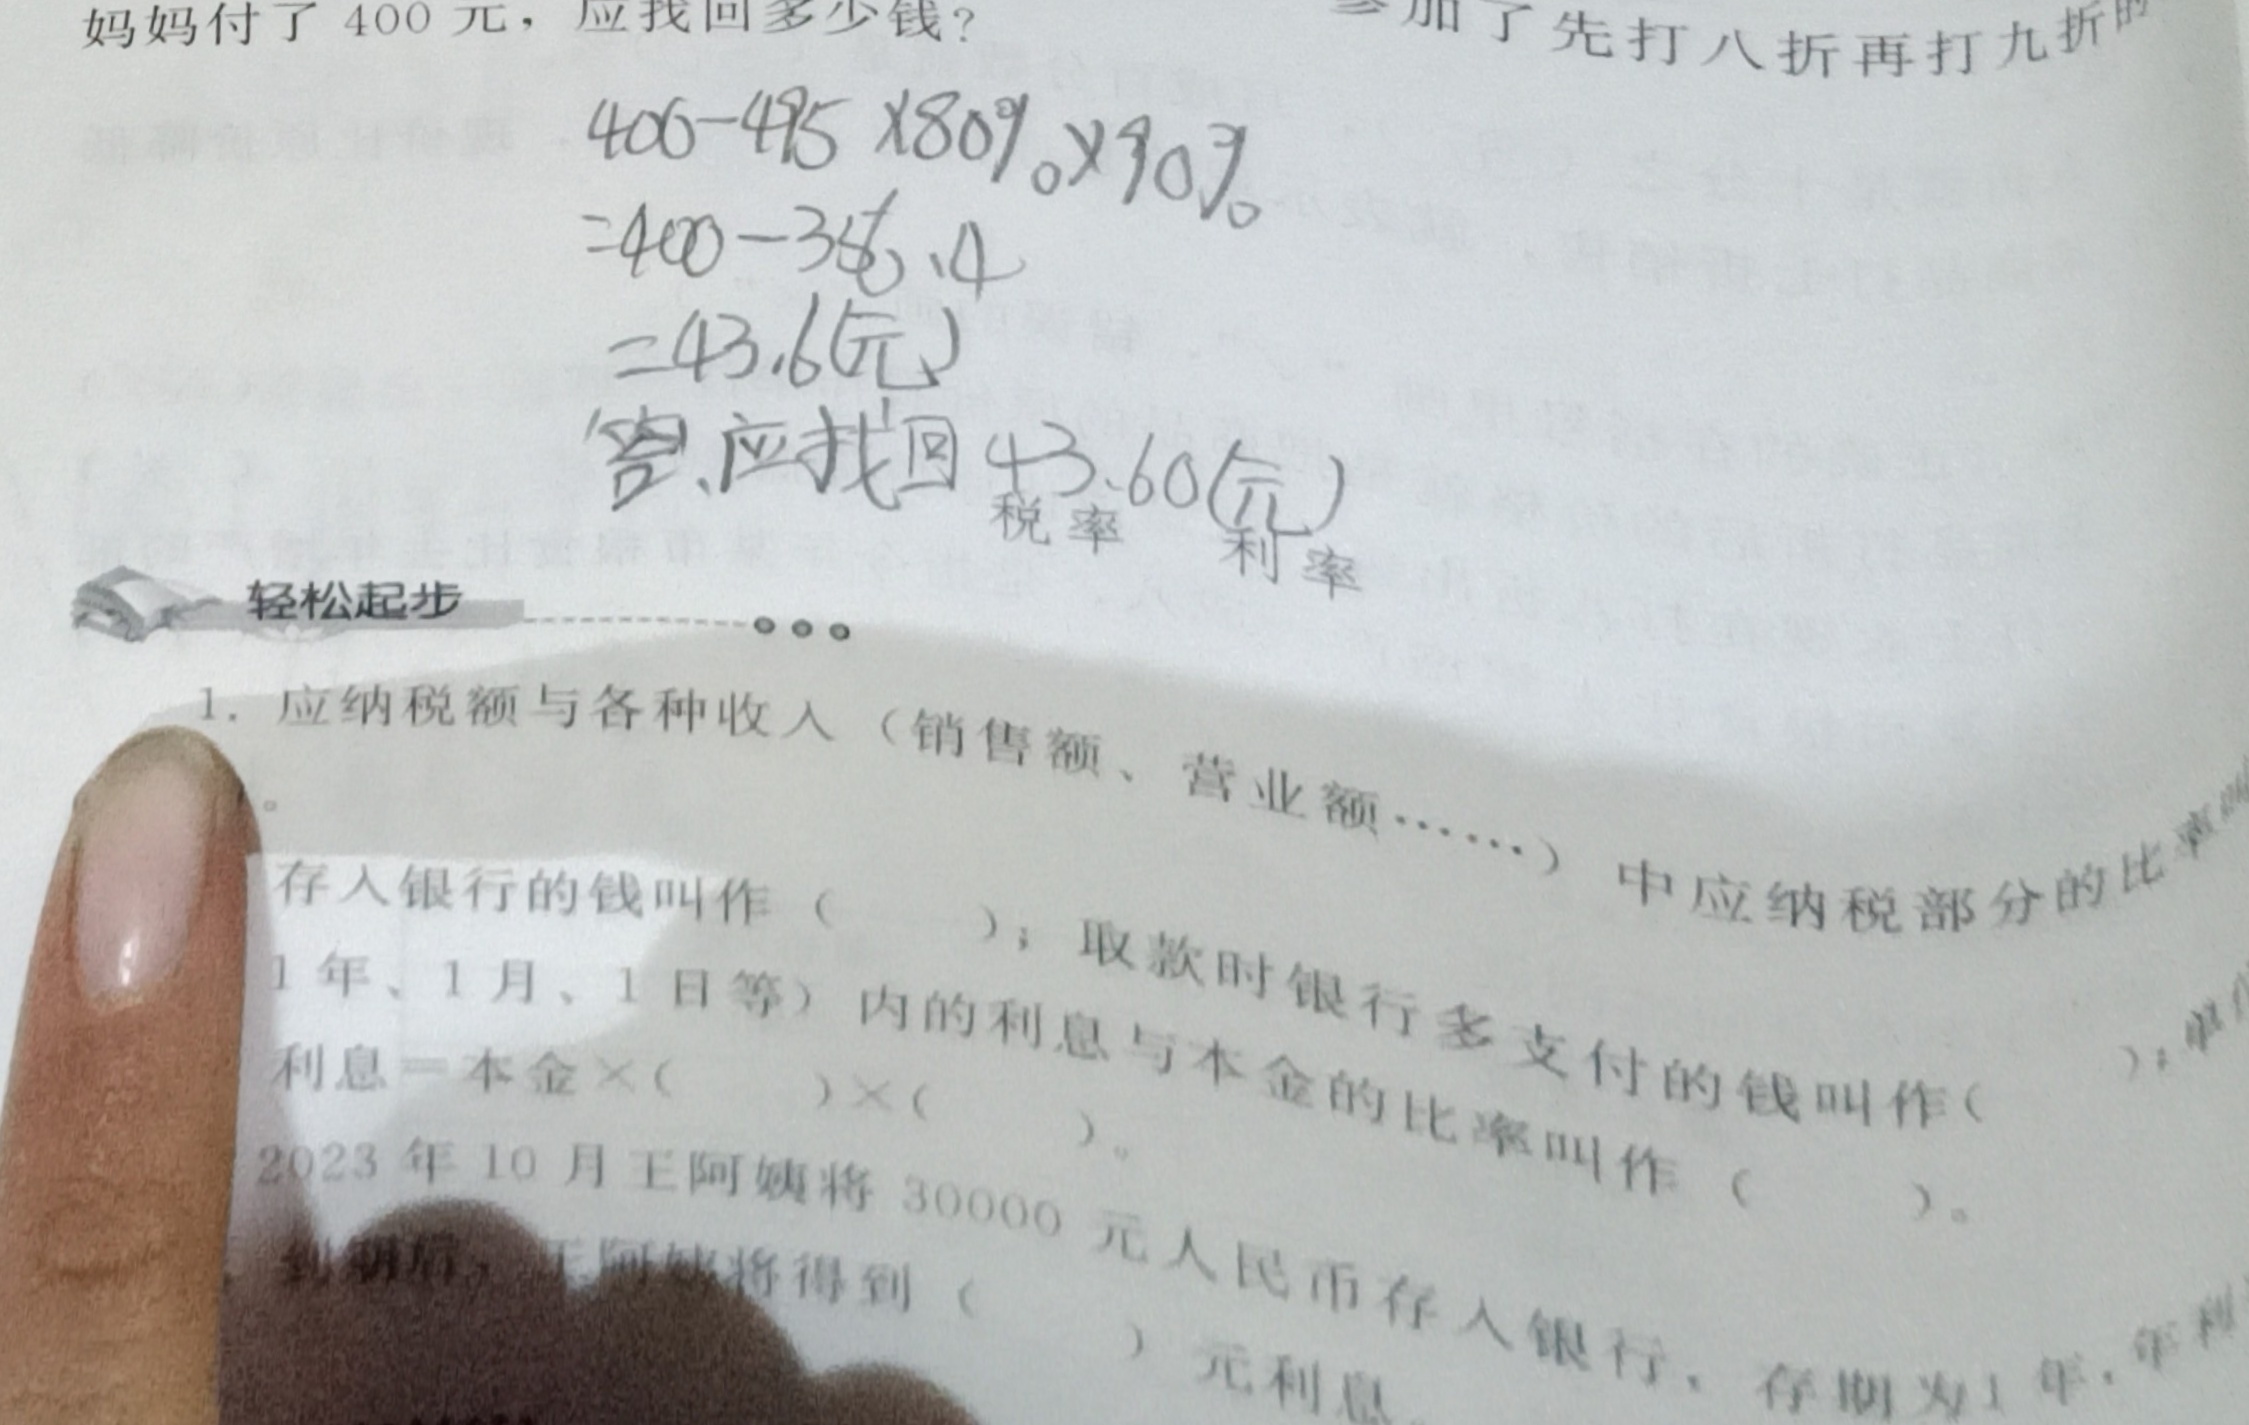 妈妈付了 400 元，应找回多少钱？
参加了先打八折再打九折的
400-495×80%×90%
=400-356.4
=43.6(元)
答、应找回43.60(元)
税率 利率
轻松起步
1. 应纳税额与各种收入（销售额、营业额……）中应纳税部分的比率叫
。
存入银行的钱叫作（ ）；取款时银行多支付的钱叫作（ ）；单位
1 年、1 月、1 日等）内的利息与本金的比率叫作（ ）。
利息=本金×( )×( )。
2023 年 10 月王阿姨将 30000 元人民币存入银行，存期为1 年，年利
到期后，王阿姨将得到（ ）元利息